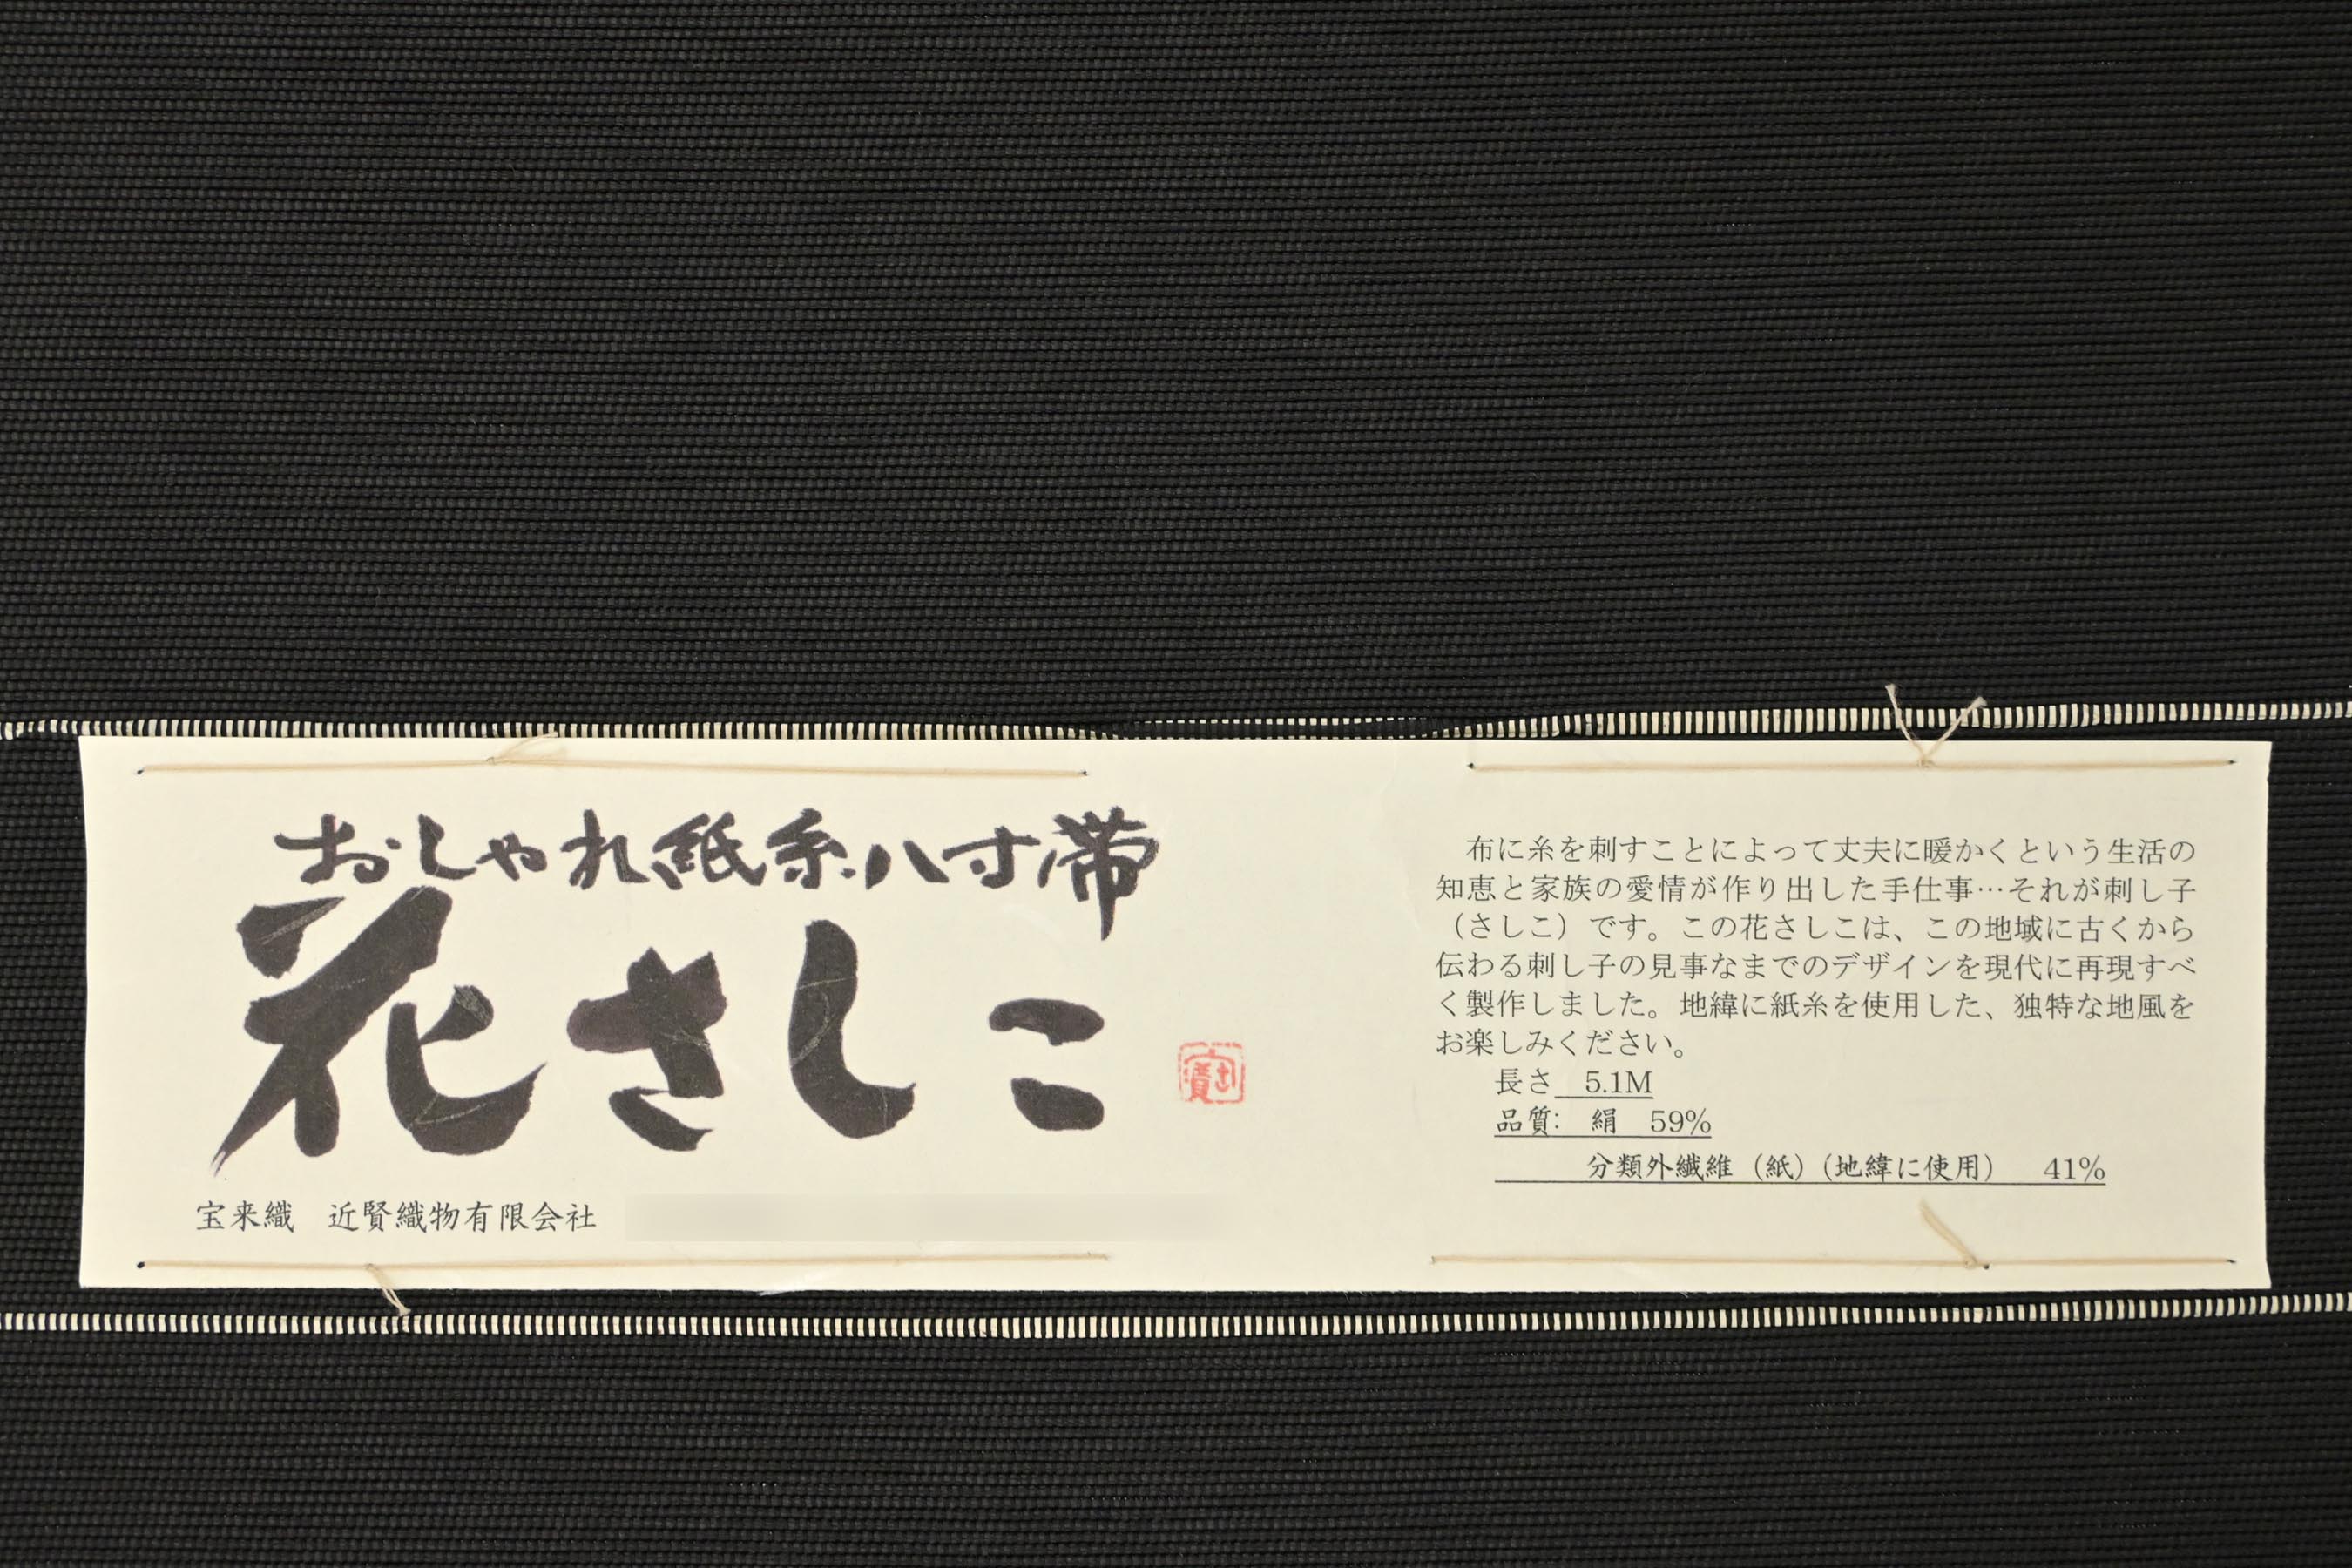 おしゃれ紙糸八寸帯
花さしこ
宝来織　近賢織物有限会社
布に糸を刺すことによって丈夫に暖かくという生活の
知恵と家族の愛情が作り出した手仕事…それが刺し子
（さしこ）です。この花さしこは、この地域に古くから
伝わる刺し子の見事なまでのデザインを現代に再現すべ
く製作しました。地緯に紙糸を使用した、独特な地風を
お楽しみください。
長さ　5.1M
品質:　絹　59%
分類外繊維（紙）（地緯に使用）　41%